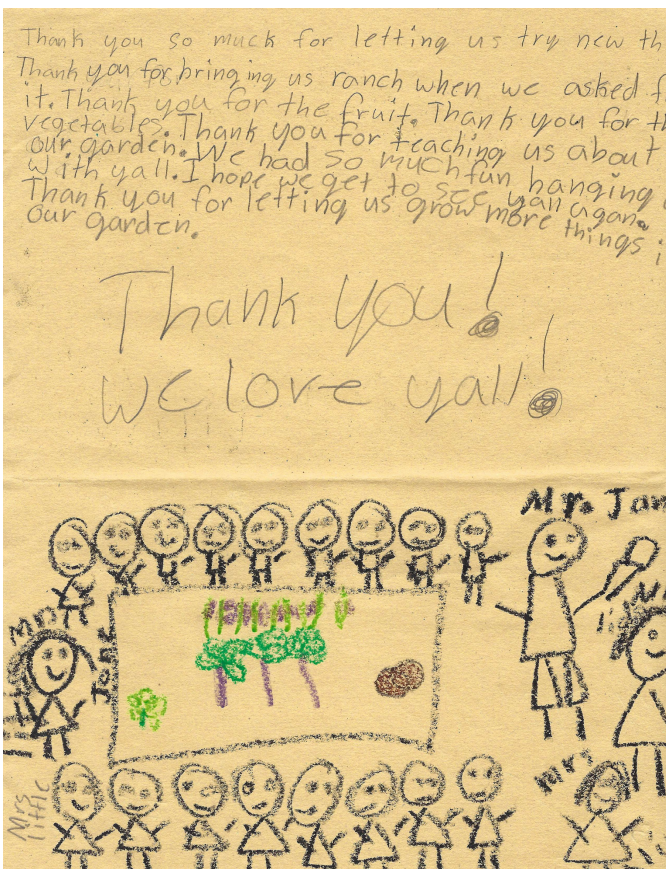 Thank you so much for letting us try new th
Thank you for bringing us ranch when we asked f
it. Thank you for the fruit. Thank you for th
vegetables. Thank you for teaching us about
our garden. We had so much fun hanging
with yall. I hope we get to see yall agan.
Thank you for letting us grow more things i
our garden.
Thank you!
we love yall!
Mr. Jan
Mrs
Jane
Mrs
Mrs
little